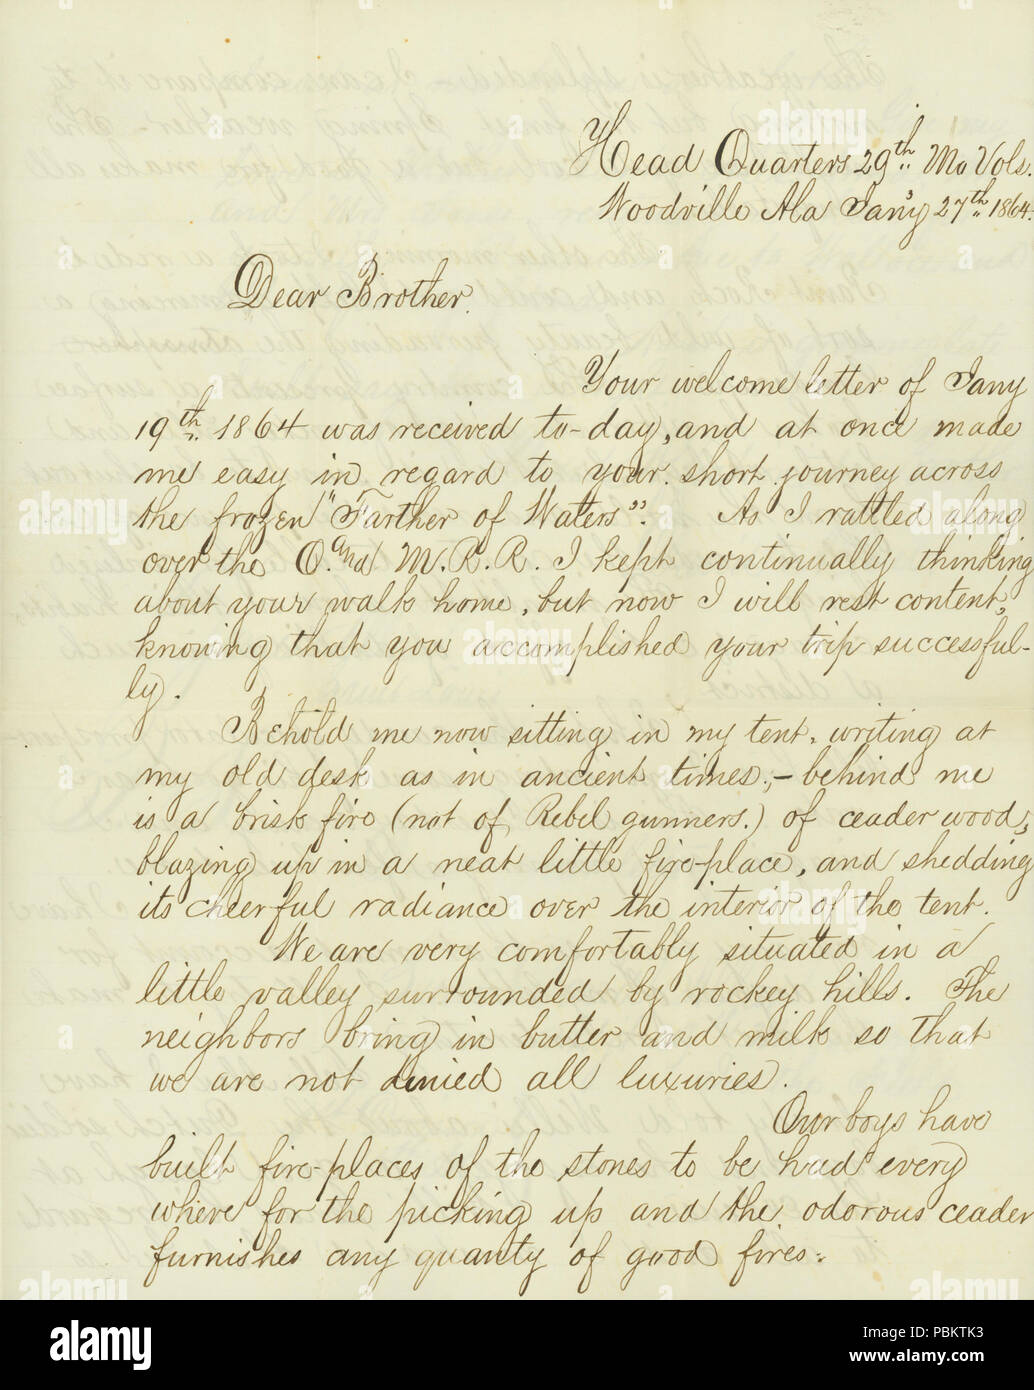 Head Quarters 29th Mo Vols.
Woodville Ala Jan'y 27th 1864.
Dear Brother.
Your welcome letter of Jany
19th 1864 was received to-day, and at once made
me easy in regard to your short journey across
the frozen "Farther of Waters". As I rattled along
over the O. and M. R. R. I kept continually thinking
about your walk home, but now I will rest content,
knowing that you accomplished your trip successful-
ly.
Behold me now sitting in my tent, writing at
my old desk as in ancient times;- behind me
is a brisk fire (not of Rebel gunners.) of ceader wood,
blazing up in a neat little fire-place, and shedding
its cheerful radiance over the interior of the tent.
We are very comfortably situated in a
little valley surrounded by rockey hills. The
neighbors bring in butter and milk so that
we are not denied all luxuries.
Our boys have
built fire-places of the stones to be had every
where for the picking up and the odorous ceader
furnishes any quanty of good fires.
alamy
Image ID: PBKTK3
www.alamy.com